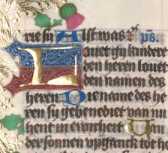 rie sy Alst was ps.
Louet gy kindere
den heren louet
den namen des
heren De name des he
ren sy gebenediet van nu
hent in ewicheit
der sonnen upganck